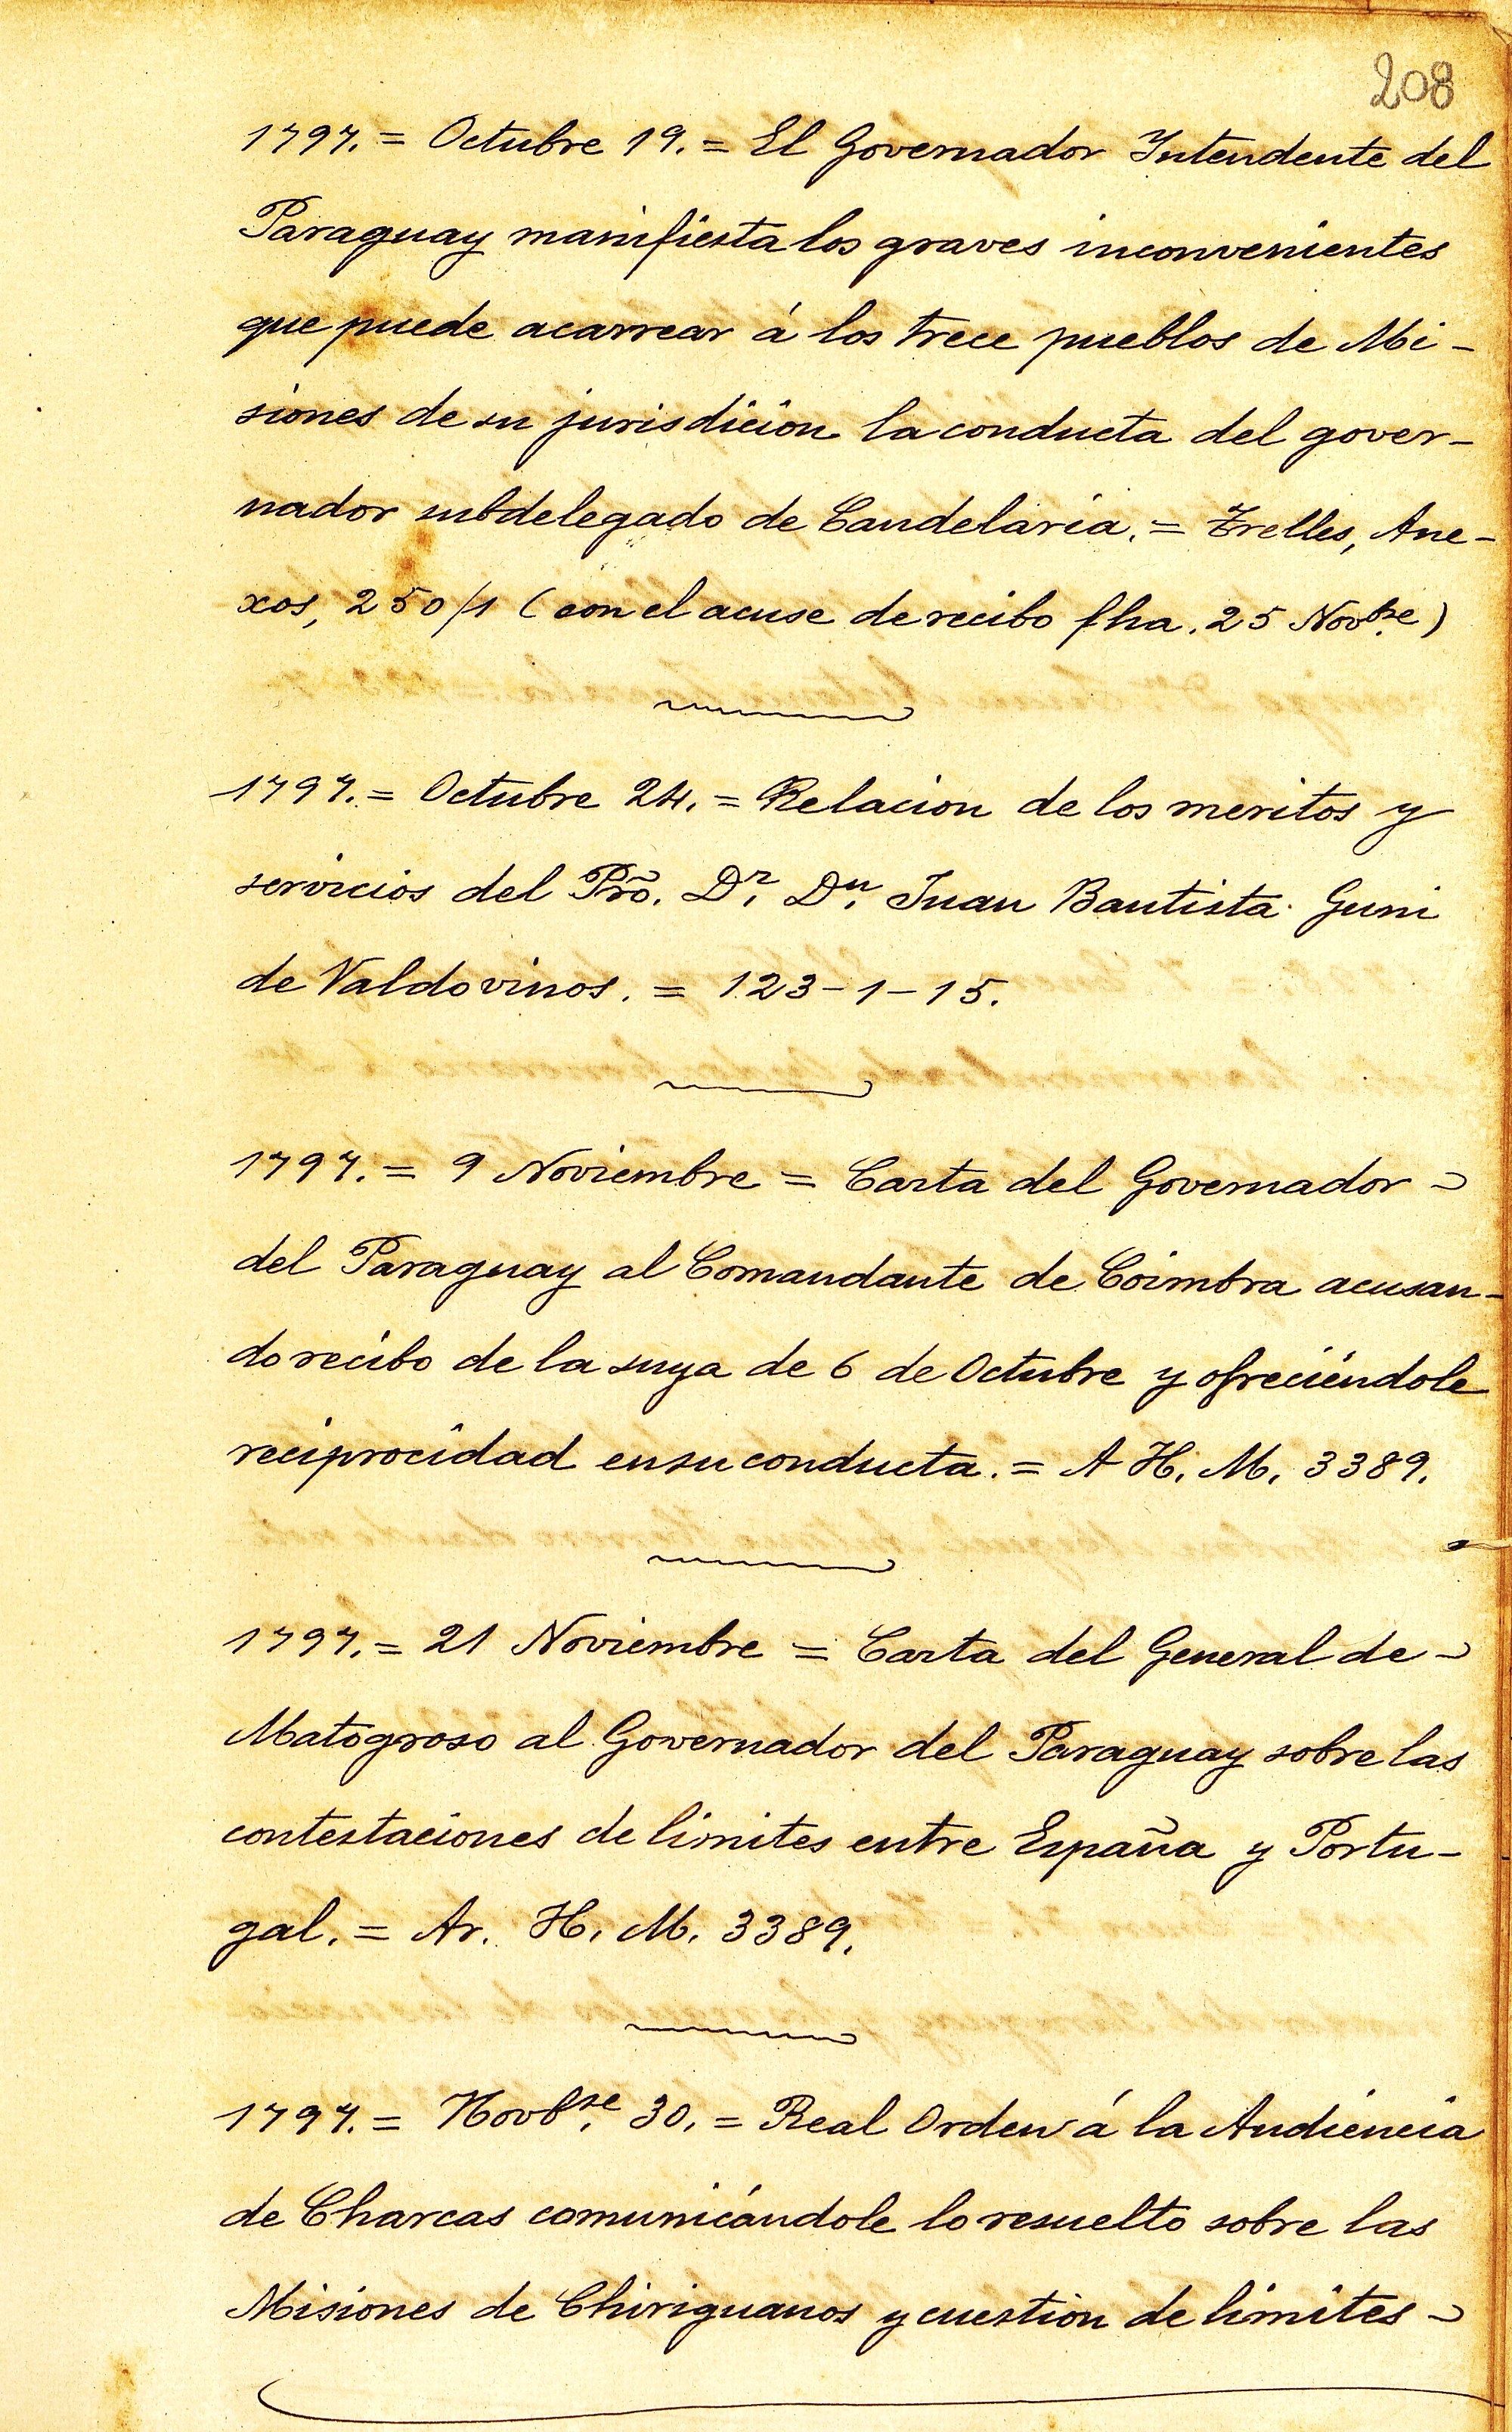 208
1797. = Octubre 19. = El Governador Intendente del
Paraguay manifiesta los graves inconvenientes
que puede acarrear á los trece pueblos de Mi-
siones de su jurisdicion la conducta del gover-
nador subdelegado de Candelaria. = Trelles, Ane-
xos, 250/1 (con el acuse de recibo fha. 25 Novbre.)
1797. = Octubre 24. = Relacion de los meritos y
servicios del Pro̅. Dr. Dn. Juan Bautista Guni
de Valdovinos. = 123-1-15.
1797. = 9 Noviembre = Carta del Governador -
del Paraguay al Comandante de Coimbra acusan-
do recibo de la suya de 6 de Octubre y ofreciéndole
reciprocidad en su conducta. = A H. M. 3389.
1797. = 21 Noviembre = Carta del General de -
Matogroso al Governador del Paraguay sobre las
contestaciones de limites entre España y Portu-
gal. = Ar. H. M. 3389.
1797. = Novbre. 30. = Real Orden á la Audiencia
de Charcas comunicándole lo resuelto sobre las
Misiones de Chiriguanos y cuestion de limites -